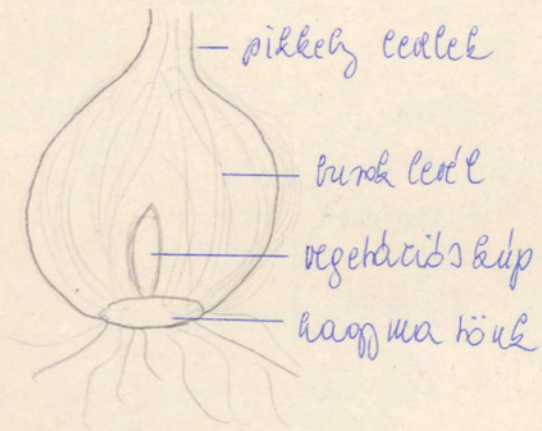 pikkely levelek
burok levél
vegetációs kúp
hagyma tönk